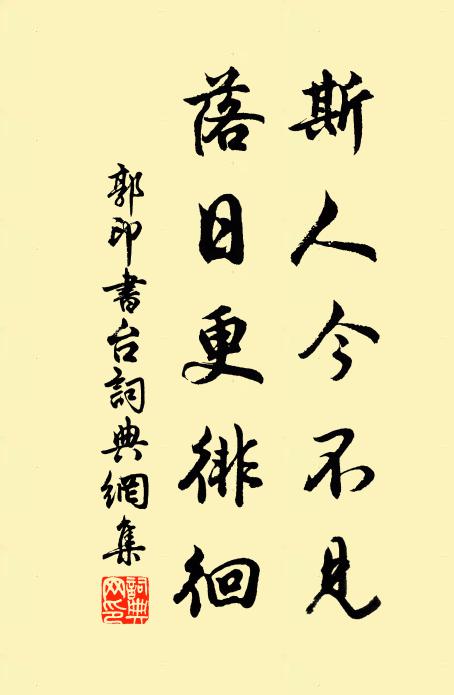 斯人今不見
落日更徘徊
郭印書台詞典網集
詞典网印